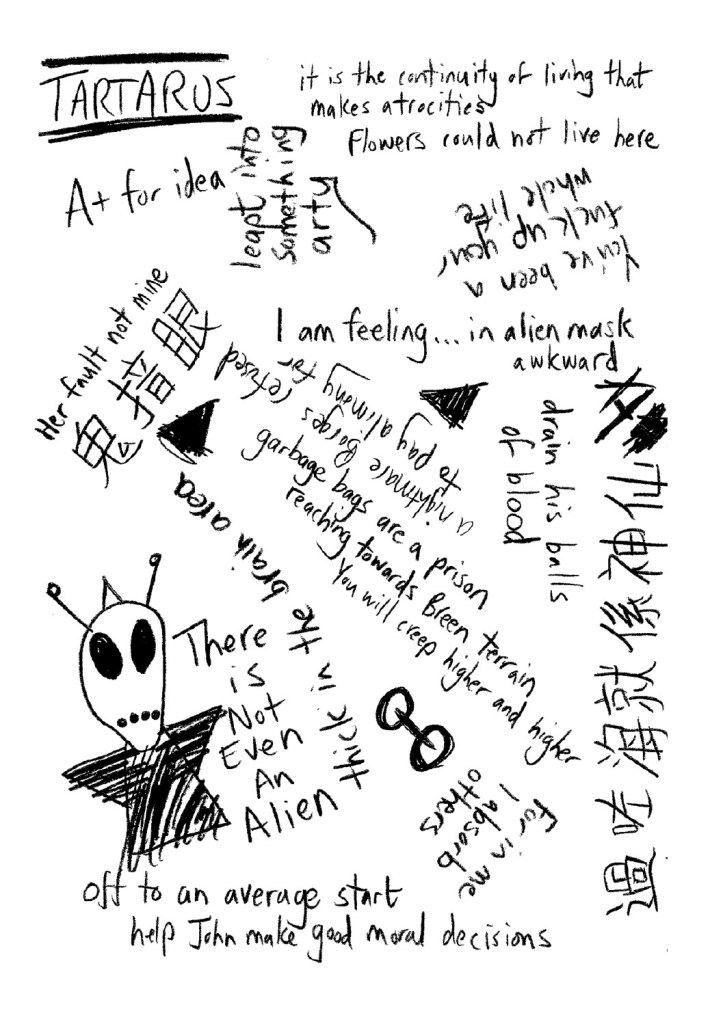 TARTARUS
it is the continuity of living that
makes atrocities
Flowers could not live here
A+ for idea
leapt into
something
arty
You've been a
fuck up your
whole life
I am feeling... in alien mask
awkward
Her fault not mine
鬼揞眼
a nightmare Borges refused
to pay alimony for
garbage bags are a prison
reaching towards Breen terrain
You will creep higher and higher
drain his balls
of blood
過咗海就係神仙
thick in the brain area
There
is
Not
Even
An
Alien
For in me
I absorb
others
off to an average start
help John make good moral decisions